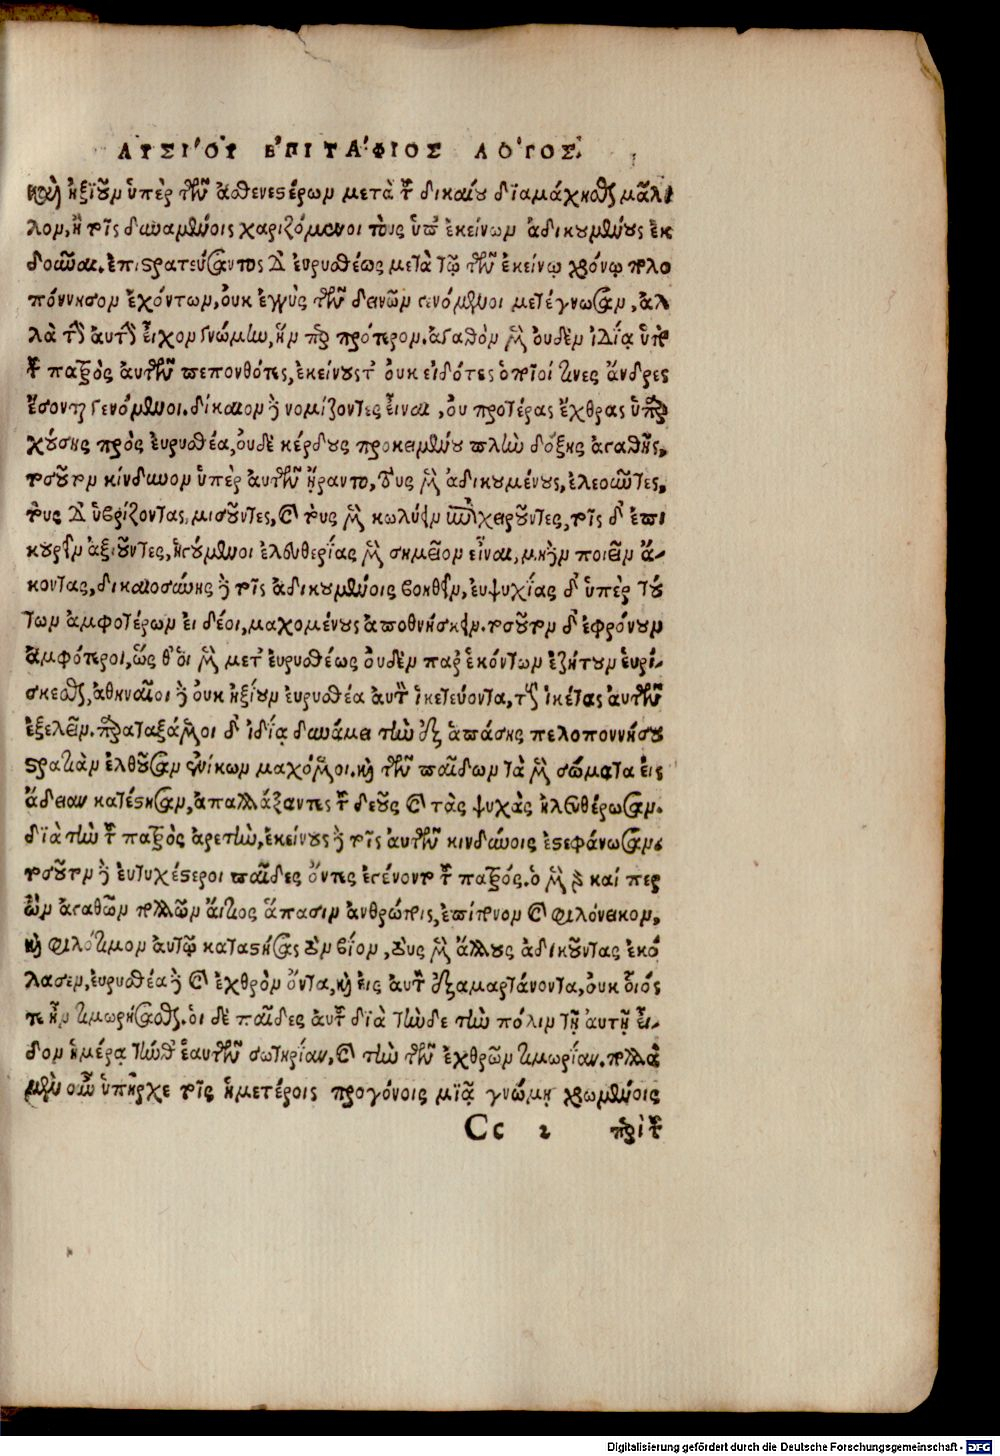 ΛΥΣΙ´ΟΥ ΕʼΠΙΤΑ´ΦΙΟΣ ΛΟ´ΓΟΣ.
καὶ ἠξίουν ὑπὲρ τῶν ἀσθενεστέρων μετὰ τοῦ δικαίου διαμάχεσθαι μᾶλ-
λον, ἢ τοῖς δυναμένοις χαριζόμενοι τοὺς ὑπ' ἐκείνων ἀδικουμένους ἐκ
δοῦναι. ἐπιστρατεύσαντος δὲ εὐρυσθέως μετὰ τῶν ἐν ἐκείνῳ χρόνῳ πελο
πόννησον ἐχόντων, οὐκ ἐγγὺς τῶν δεινῶν γενόμενοι μετέγνωσαν, ἀλ
λὰ τὴν αὐτὴν εἶχον γνώμην, ἥν περ πρότερον. ἀγαθὸν μὲν οὐδὲν ἰδίᾳ ὑπὸ
τοῦ πατρὸς αὐτῶν πεπονθότες, ἐκείνους τ' οὐκ εἰδότες ὁποῖοί τινες ἄνδρες
ἔσονται γενόμενοι. δίκαιον δὲ νομίζοντες εἶναι, οὐ προτέρας ἔχθρας ὑπαρ
χούσης πρὸς εὐρυσθέα, οὐδὲ κέρδους προκειμένου πλὴν δόξης ἀγαθῆς,
τοσοῦτον κίνδυνον ὑπὲρ αὐτῶν ἤραντο, τοὺς μὲν ἀδικουμένους, ἐλεοῦντες,
τοὺς δὲ ὑβρίζοντας, μισοῦντες, καὶ τοὺς μὲν κωλύειν ἐπιχειροῦντες, τοῖς δ' ἐπι
κουρεῖν ἀξιοῦντες, ἡγούμενοι ἐλευθερίας μὲν σημεῖον εἶναι, μηδὲν ποιεῖν ἄ-
κοντας, δικαιοσύνης δὲ τοῖς ἀδικουμένοις βοηθεῖν, εὐψυχίας δ' ὑπὲρ τού
των ἀμφοτέρων εἰ δέοι, μαχομένους ἀποθνήσκειν. τοσοῦτον δ' ἐφρόνουν
ἀμφότεροι, ὥς θ' οἱ μὲν μετ' εὐρυσθέως οὐδὲν παρ' ἑκόντων ἐζήτουν εὑρί-
σκεσθαι, ἀθηναῖοι δὲ οὐκ ἠξίουν εὐρυσθέα αὐτὸν ἱκετεύοντα, τοὺς ἱκέτας αὐτῶν
ἐξελεῖν. παραταξάμενοι δ' ἰδίᾳ δυνάμει τὴν ἐξ ἁπάσης πελοποννήσου
στρατιὰν ἐλθοῦσαν ἐνίκων μαχόμενοι. καὶ τῶν παίδων τὰ μὲν σώματα εἰς
ἄδειαν κατέστησαν, ἀπαλλάξαντες τοῦ δέους καὶ τὰς ψυχὰς ἠλευθέρωσαν.
διὰ τὴν τοῦ πατρὸς ἀρετὴν, ἐκείνους δὲ τοῖς αὐτῶν κινδύνοις ἐστεφάνωσαν.
τοσοῦτον δὲ εὐτυχέστεροι παῖδες ὄντες ἐγένοντο τοῦ πατρός. ὁ μὲν γὰρ καί περ
ὢν ἀγαθῶν πολλῶν αἴτιος ἅπασιν ἀνθρώποις, ἐπίπονον καὶ φιλόνεικον,
καὶ φιλότιμον αὐτῷ καταστήσας τὸν βίον, τοὺς μὲν ἄλλους ἀδικοῦντας ἐκό
λασεν, εὐρυσθέα δὲ καὶ ἐχθρὸν ὄντα, καὶ εἰς αὐτὸν ἐξαμαρτάνοντα, οὐκ οἷός
τε ἦν τιμωρήσασθαι. οἱ δὲ παῖδες αὐτοῦ διὰ τήνδε τὴν πόλιν τῇ αὐτῇ εἶ-
δον ἡμέρᾳ τήν θ' ἑαυτῶν σωτηρίαν, καὶ τὴν τῶν ἐχθρῶν τιμωρίαν. πολλὰ
μὲν οὖν ὑπῆρχε τοῖς ἡμετέροις προγόνοις μιᾷ γνώμῃ χρωμένοις
Cc 2 περὶ τοῦ
Digitalisierung gefördert durch die Deutsche Forschungsgemeinschaft - DFG